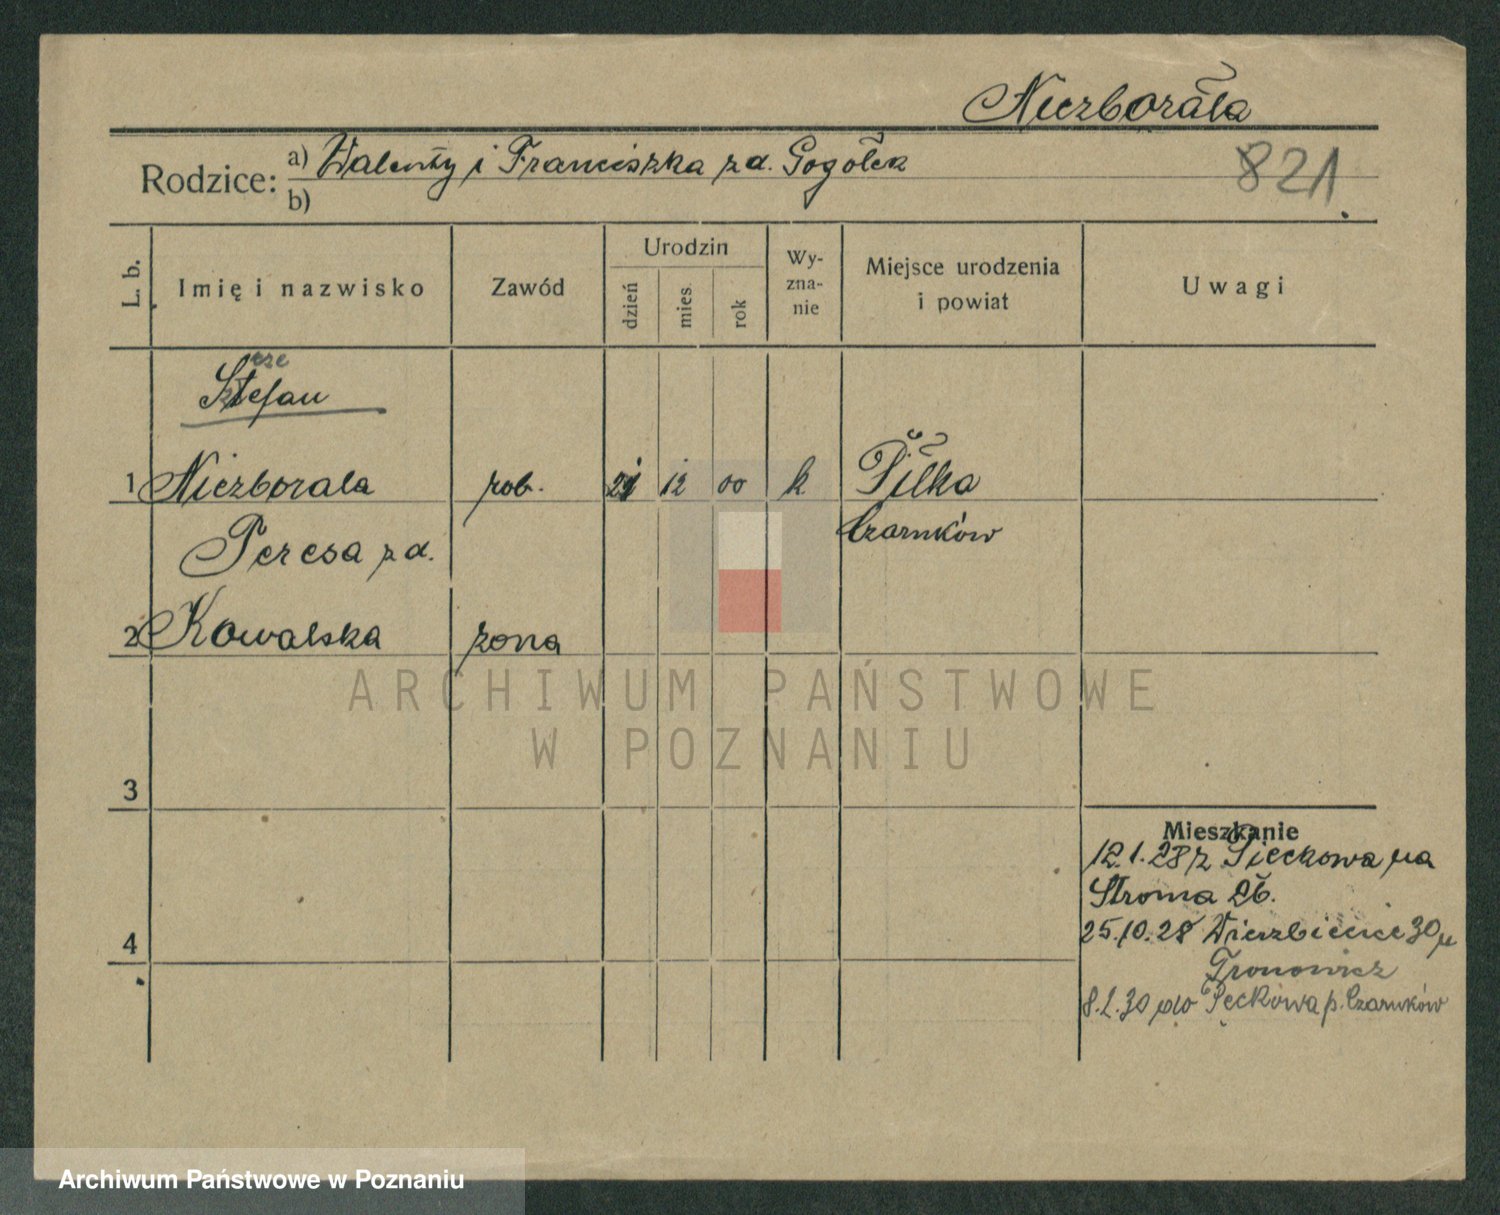 Niezborała
Rodzice: a) Walenty i Franciszka z d. Gogołek
b)
821
L. b.
Imię i nazwisko
Zawód
Urodzin
dzień
mies.
rok
Wy-
zna-
nie
Miejsce urodzenia
i powiat
Uwagi
Stefan
1 Niezborala rob. 12 00 k Piłka
Czarnków
Teresa z d.
2 Kowalska żona
ARCHIWUM PAŃSTWOWE
W POZNANIU
3
4
Mieszkanie
12.1.28 z na
Stroma 26.
25.10.28 Wierzbięcice 30 u
Tronowicz
8.2.30 do p. Czarnków
Archiwum Państwowe w Poznaniu